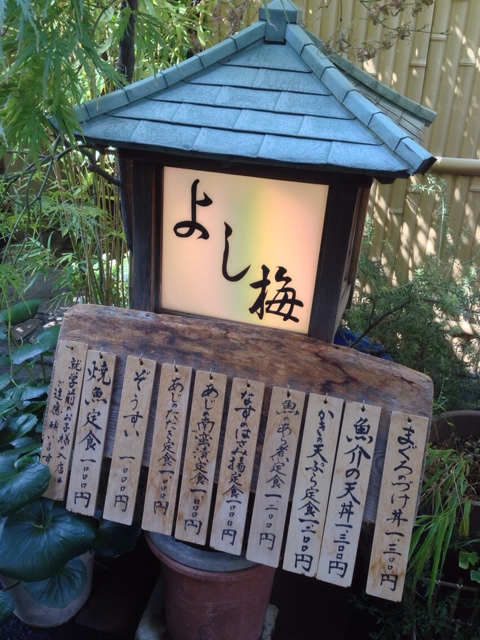 よし梅
まぐろづけ丼 一、三〇〇円
魚介の天丼 一、三〇〇円
かきの天ぷら定食 一、二〇〇円
魚のあら煮定食 一、二〇〇円
なすのはさみ揚定食 一、〇〇〇円
あじ南蛮漬定食 一、〇〇〇円
あじのたたき定食 一、〇〇〇円
ぞうすい 一、〇〇〇円
焼魚定食 一、〇〇〇円
就学前のお子様の入店は
ご遠慮願います